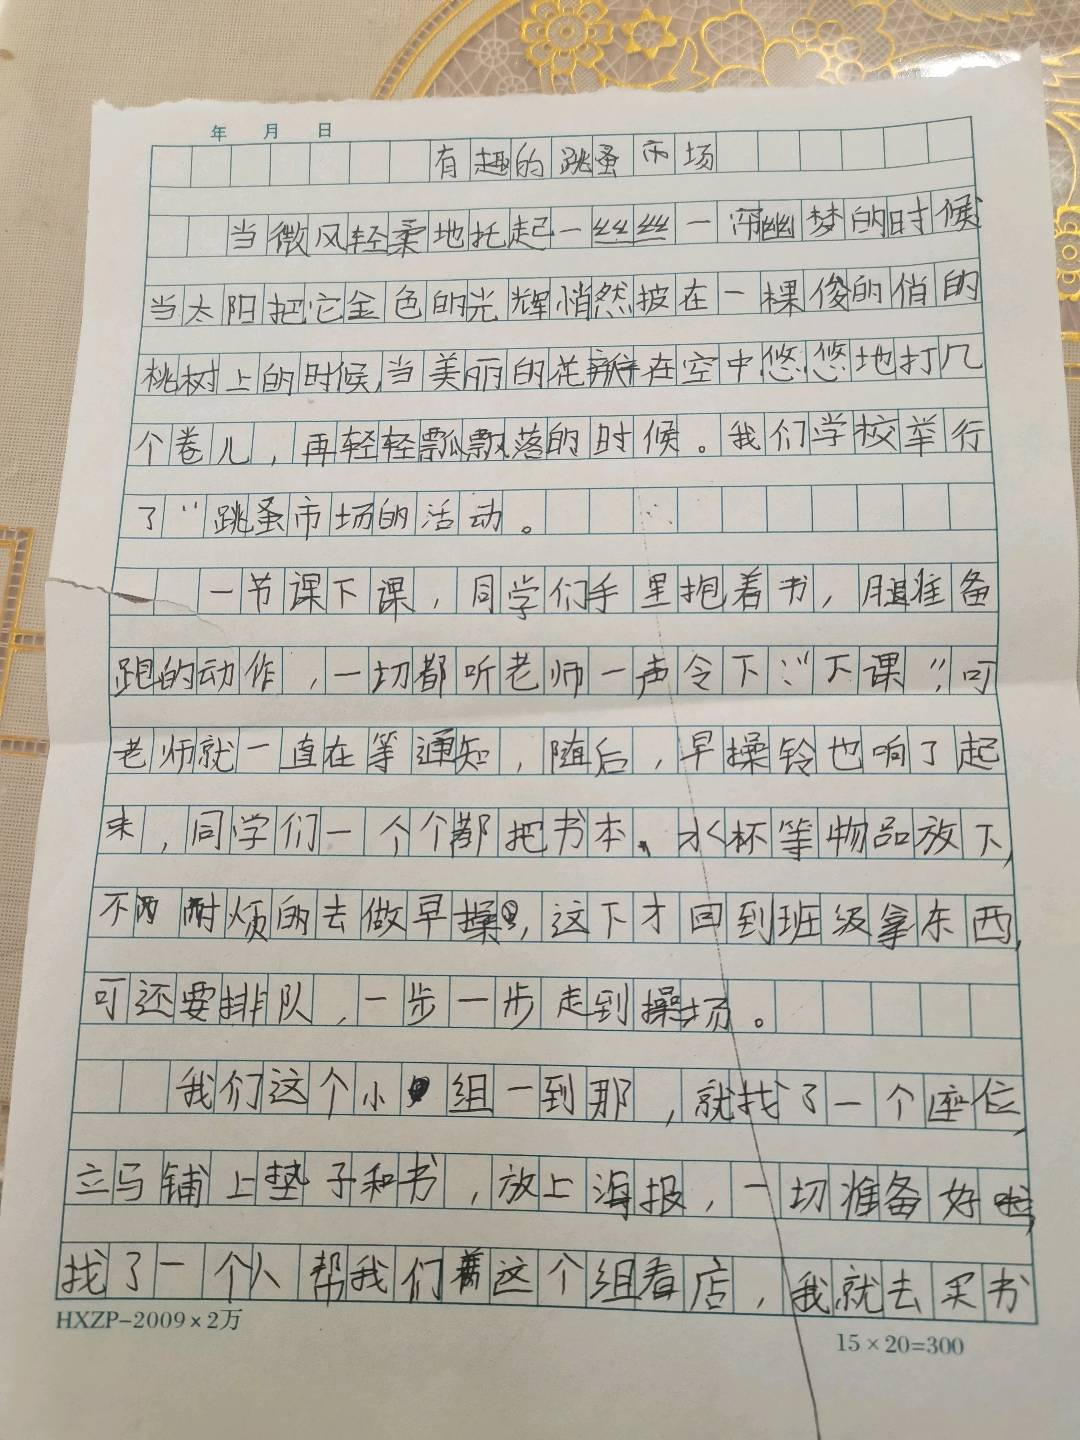 年 月 日
有趣的跳蚤市场
当微风轻柔地托起一丝丝一帘幽梦的时候
当太阳把它金色的光辉悄然披在一棵俊的俏的
桃树上的时候,当美丽的花瓣在空中悠悠地打几
个卷儿，再轻轻飘飘落的时候。我们学校举行
了“跳蚤市场的活动。
一节课下课，同学们手里抱着书，腿准备
跑的动作，一切都听老师一声令下：“下课”，可
老师就一直在等通知，随后，早操铃也响了起
来，同学们一个个都把书本、水杯等物品放下，
不耐烦的去做早操，这下才回到班级拿东西，
可还要排队，一步一步走到操场。
我们这个小组一到那，就找了一个座位，
立马铺上垫子和书，放上海报，一切准备好啦，
找了一个人帮我们这个组看店，我就去买书
HXZP-2009×2万
15×20=300